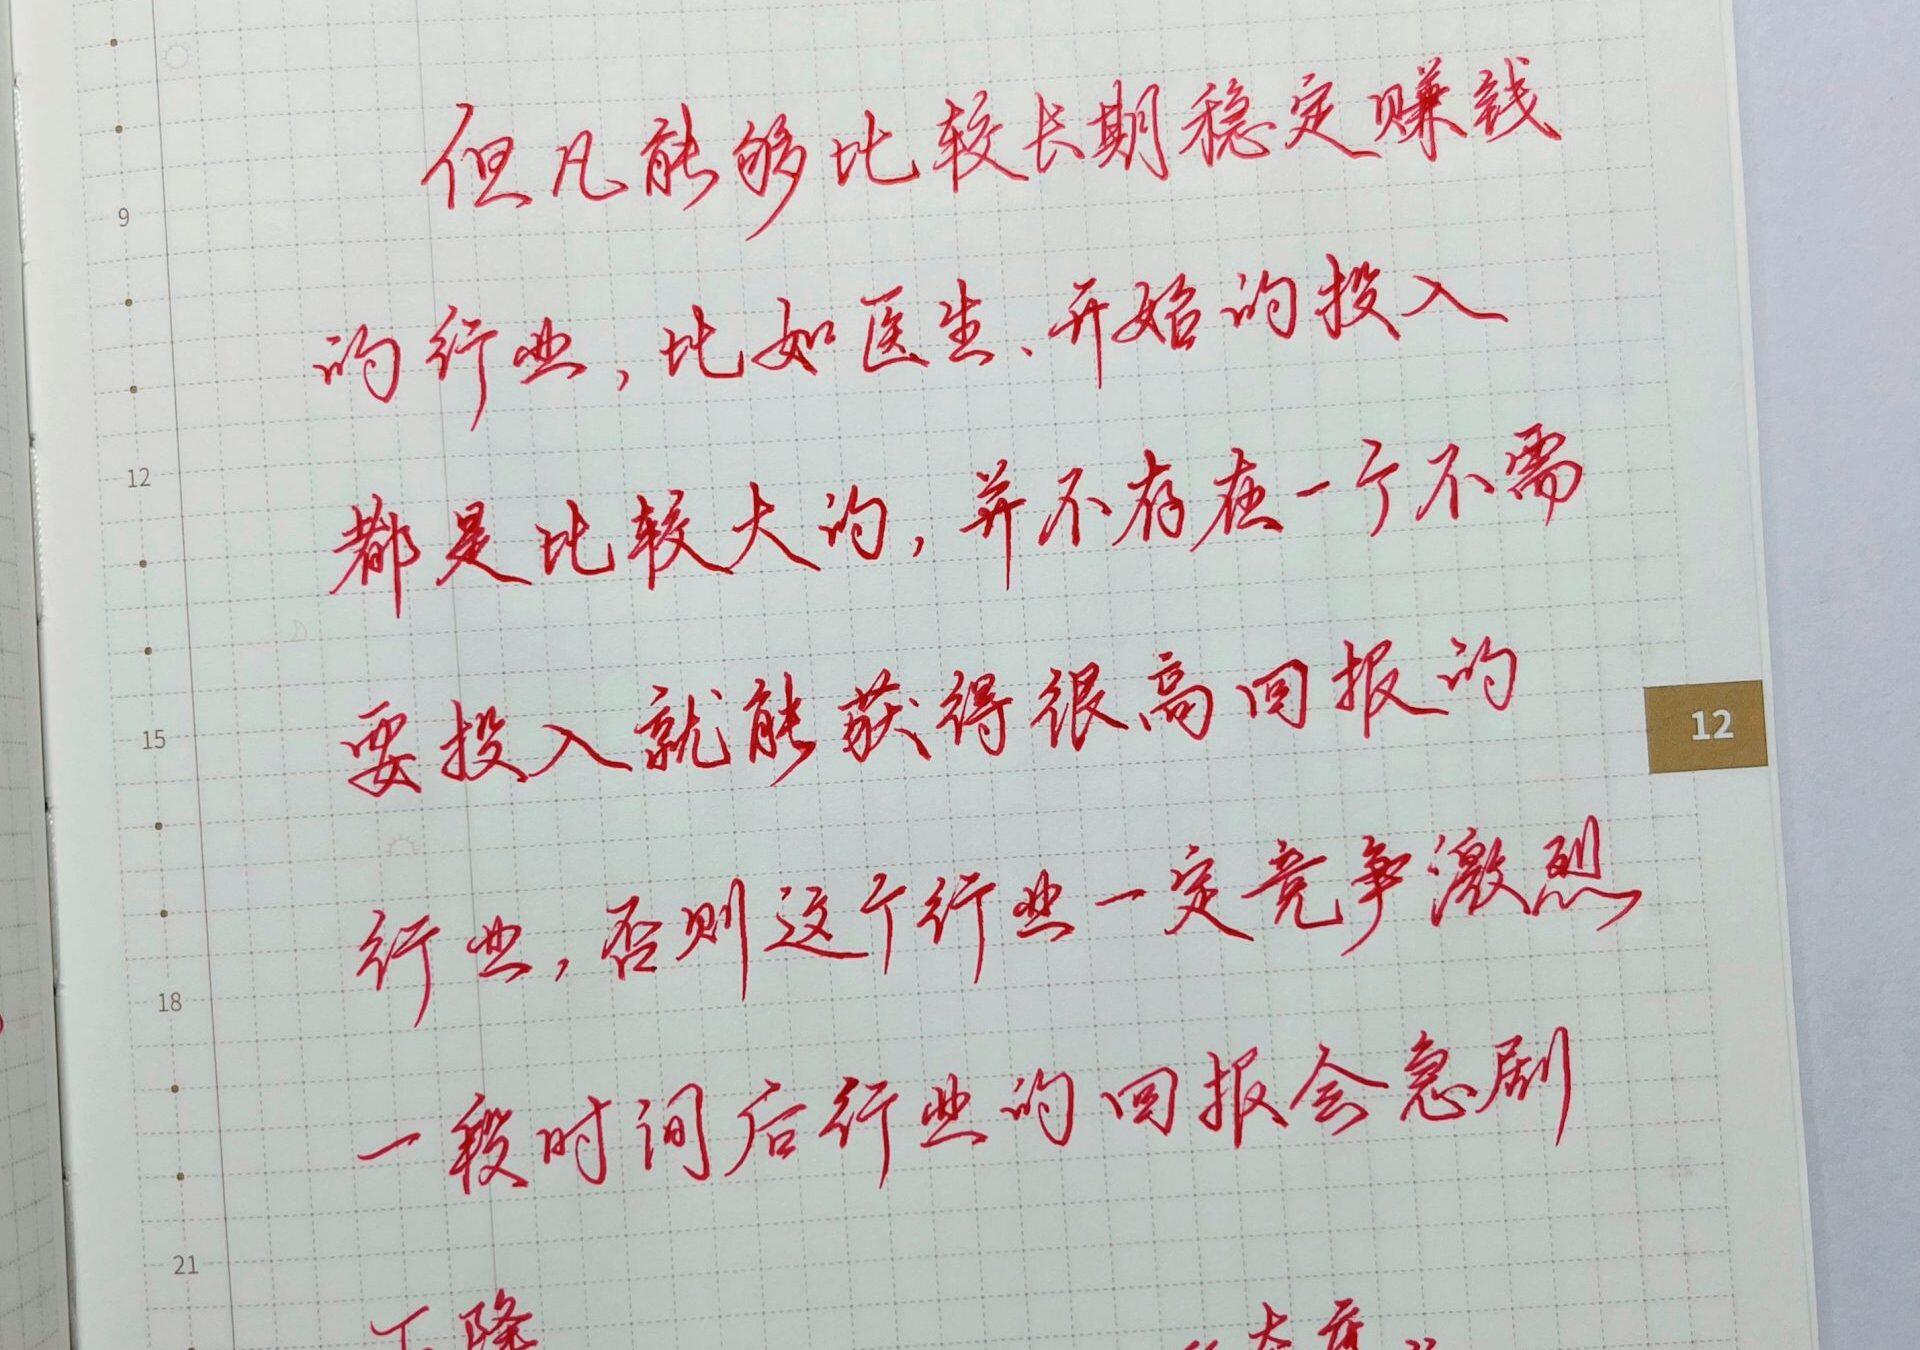 但凡能够比较长期稳定赚钱
9
的行业，比如医生、开始的投入
12
都是比较大的，并不存在一个不需
要投入就能获得很高回报的
12
15
行业，否则这个行业一定竞争激烈
18
一段时间后行业的回报会急剧
21
下降